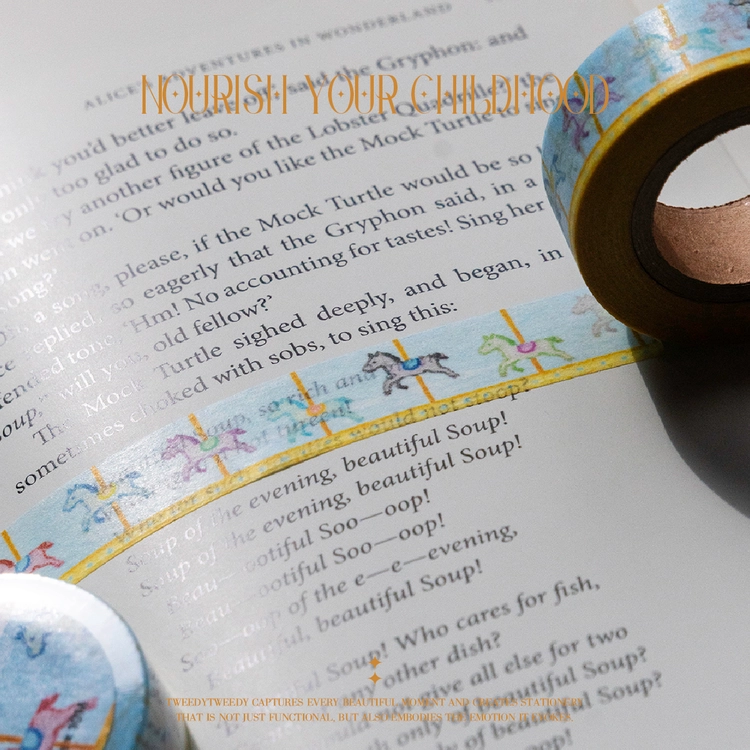 ALICE'S ADVENTURES IN WONDERLAND
NOURISH YOUR CHILDHOOD
you'd better leave off,' said the Gryphon: and
too glad to do so.
another figure of the Lobster Quadrille?' the
on. 'Or would you like the Mock Turtle to
song?'
a song, please, if the Mock Turtle would be so
replied, so eagerly that the Gryphon said, in a
tone, 'Hm! No accounting for tastes! Sing her
Soup," will you, old fellow?'
The Mock Turtle sighed deeply, and began, in
sometimes choked with sobs, to sing this:
Soup, so rich and
not tureen!
would not stoop?
Soup of the evening, beautiful Soup!
Soup of the evening, beautiful Soup!
Beau—ootiful Soo—oop!
Beau—ootiful Soo—oop!
Soo—oop of the e—e—evening,
Beautiful, beautiful Soup!
Soup! Who cares for fish,
any other dish?
not give all else for two
beautiful Soup?
Soup?
TWEEDYTWEEDY CAPTURES EVERY BEAUTIFUL MOMENT AND CREATES STATIONERY
THAT IS NOT JUST FUNCTIONAL, BUT ALSO EMBODIES THE EMOTION IT EVOKES.